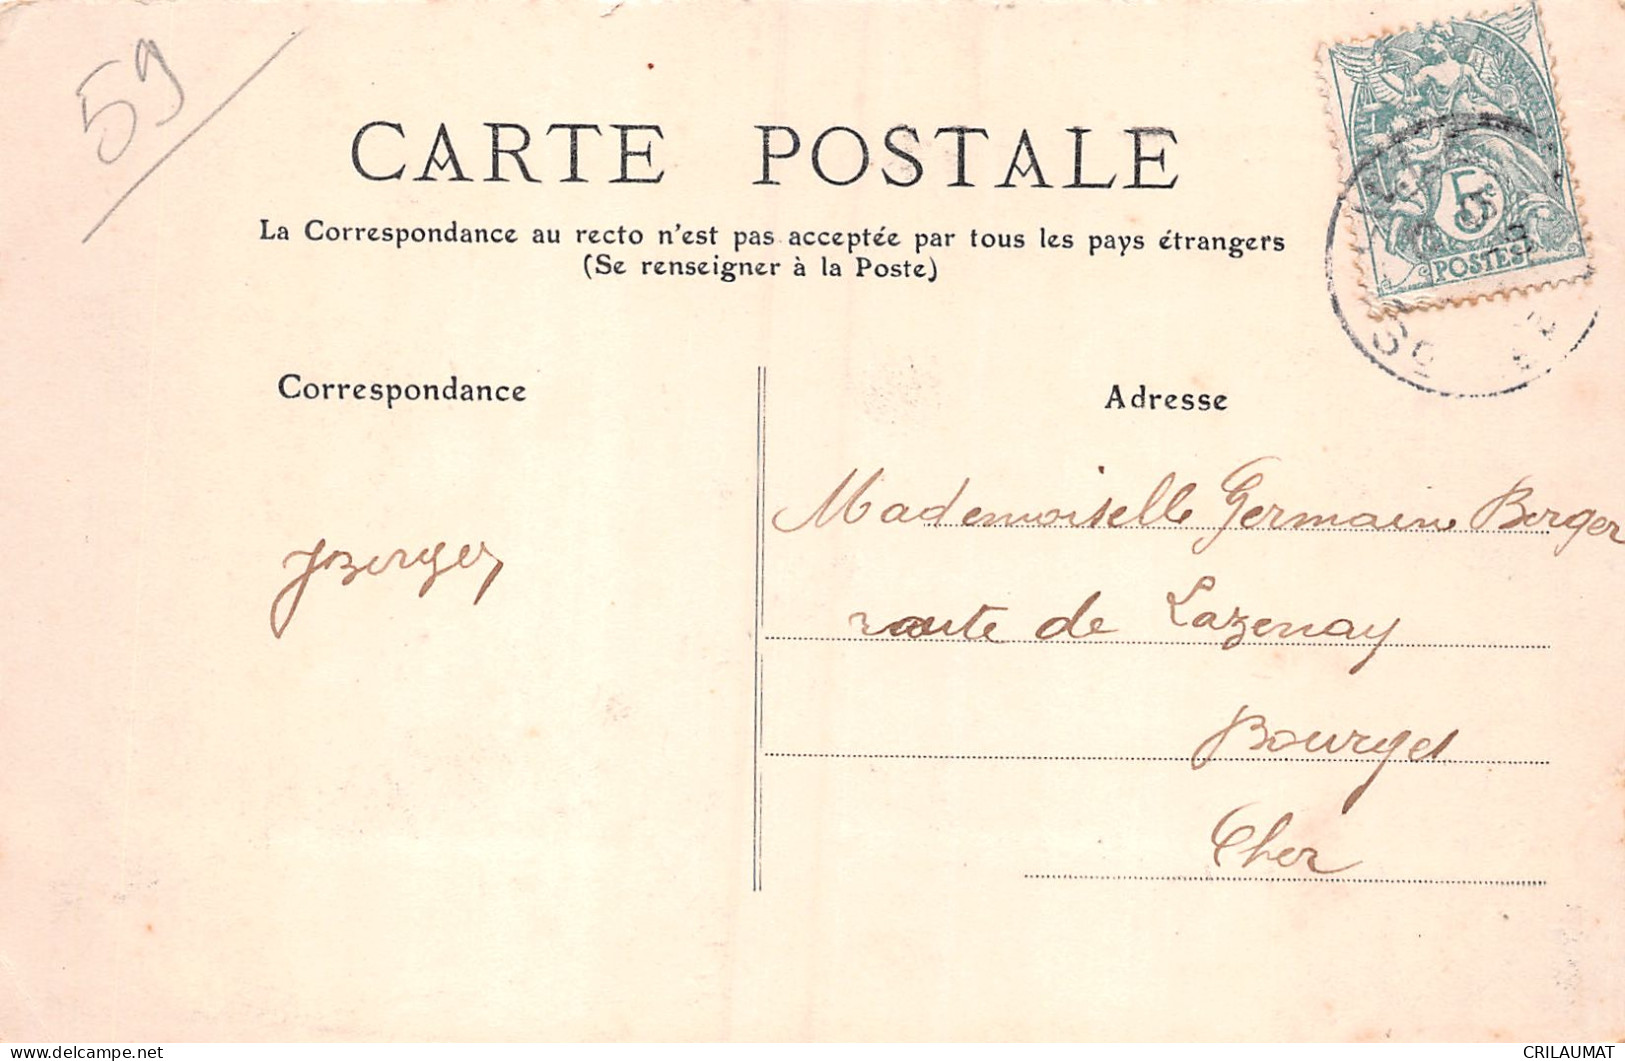 59
CARTE POSTALE
La Correspondance au recto n'est pas acceptée par tous les pays étrangers
(Se renseigner à la Poste)
5c
POSTES
Correspondance
Adresse
JBerger
Mademoiselle Germaine Berger
route de Lazenay
Bourges
Cher
CRILAUMAT